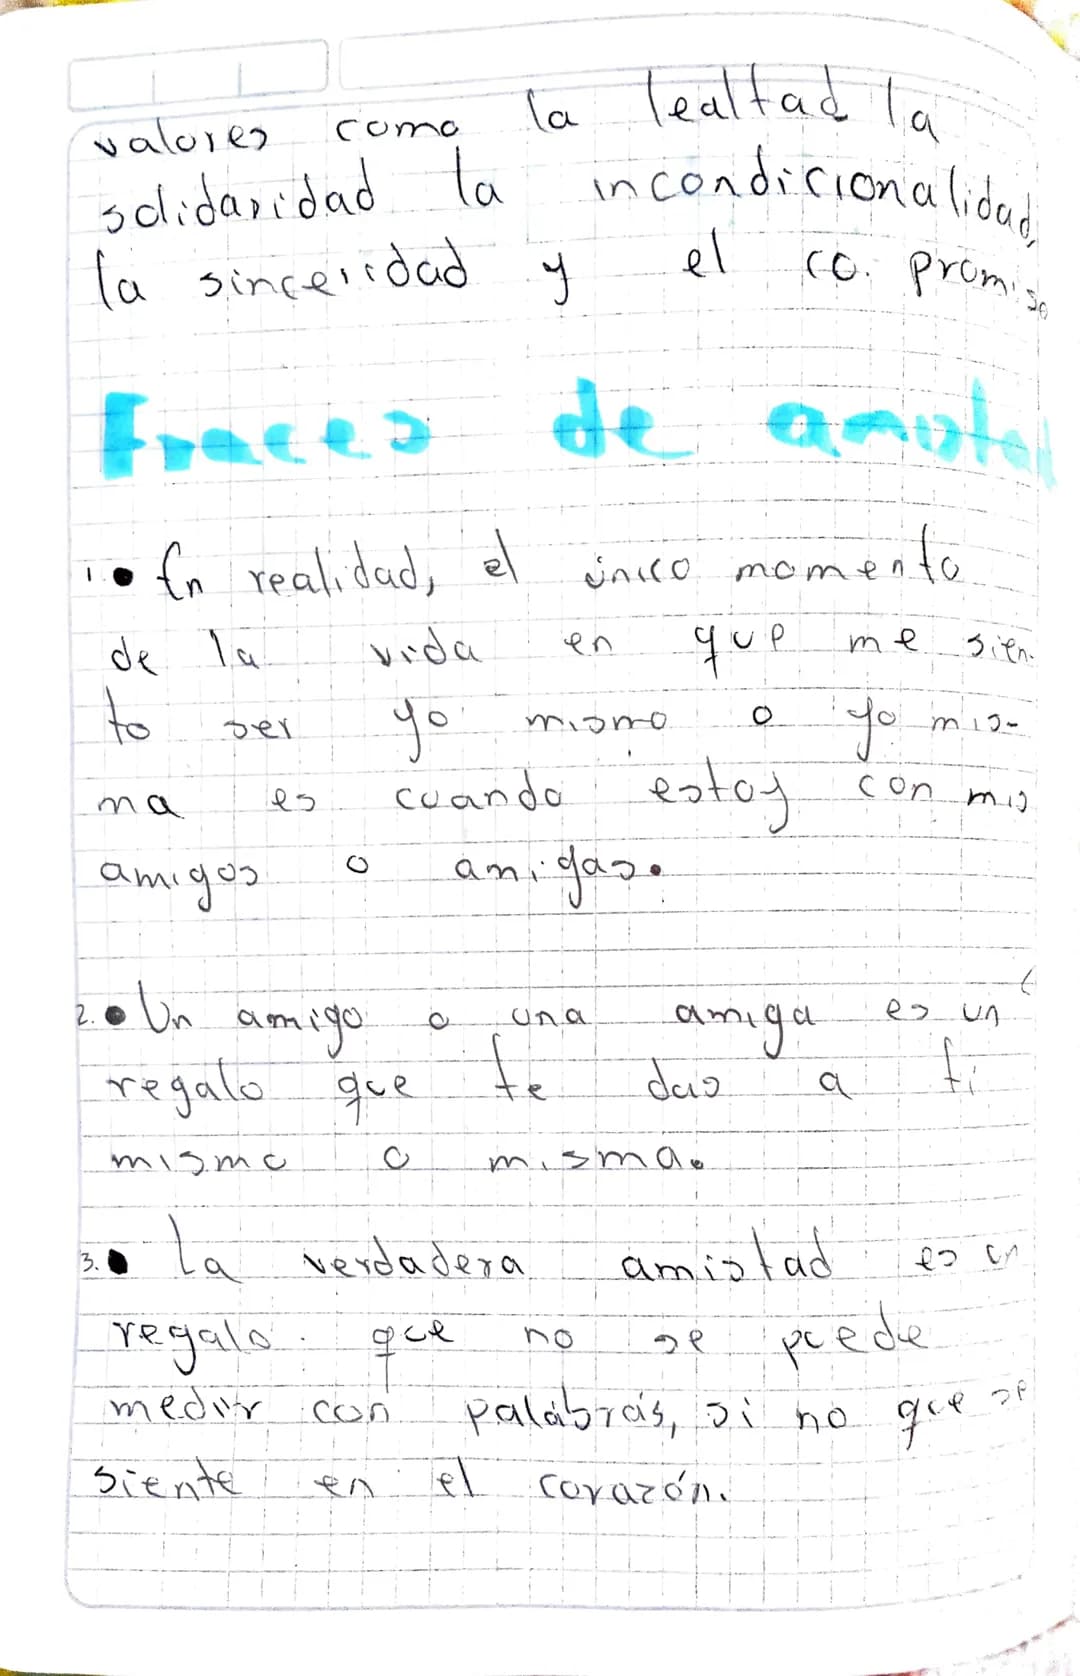 valores como la lealtad la
solidaridad la incondicionalidad,
la sinceridad y el co.promiso
Fraces de amistad
1. • En realidad, el único momento
de la vida en que me sien-
to ser yo mismo o yo mis-
ma es cuando estoy con mis
amigos o amigas.
2. • Un amigo o una amiga es un
regalo que te das a ti
mismo o misma.
3. • La verdadera amistad es un
regalo que no se puede
medir con palabras, si no que se
siente en el corazón.